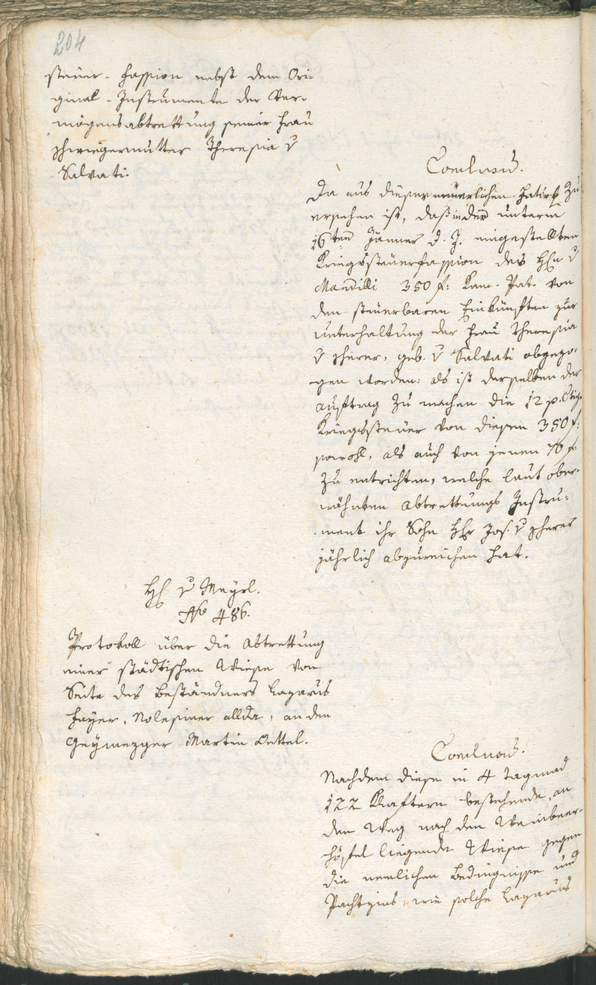 204
steuer-Fassion nebst dem Ori-
ginal-Instrumente der Ver-
mögensabtrettung seiner Frau
Schwiegermutter Theresia v
Salvati.
Conclusum.
Da aus dieser neuerlichen Fation zu
ersehen ist, daß in der unterm
16ten Jänner d. J. eingestellten
Kriegssteuerfassion des Hhn v
Mandilli 350 f: von
den steuerbaren Einkünften zur
Unterhaltung der Frau Theresia
v Eherer, geb. v Salvati abgezo-
gen worden: als ist derselben der
Auftrag zu machen die 12 p.
Kriegssteuer von diesen 350 f:
sowohl, als auch von jenen 70 f
zu entrichten, welche laut ober-
wähnten Abtrettungs Instru-
ment ihr Sohn Hhr Jos. v Eherer
jährlich abzureichen hat.
Hh v Mayrl.
No 486.
Protokoll über die Abtrettung
einer städtischen Wiese von
Seite des Beständners Lazarus
Hayer, allda, an den
Geymezger Martin Oettel.
Conclusum.
Nachdem diese in 4 Tagmad
122 Klaftern bestehende, an
dem Weg nach dem
liegende Wiese gegen
die nemlichen Bedingnisse und
Pachtzins, wie solche Lazarus